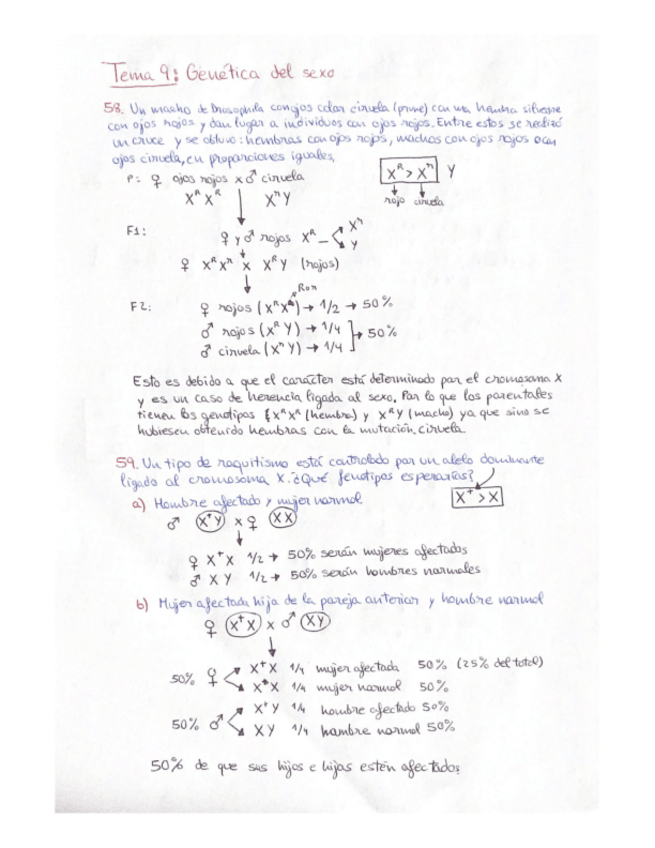 Tema 9: Genética del sexo
58. Un macho de Drosophila con ojos color ciruela (prune) con una hembra silvestre
con ojos rojos y dan lugar a individuos con ojos rojos. Entre estos se realizó
un cruce y se obtuvo: hembras con ojos rojos, machos con ojos rojos o con
ojos ciruela, en proporciones iguales.
P: ♀ ojos rojos x ♂ ciruela
X^R X^R X^r Y
X^R > X^r Y
rojo ciruela
F1:
♀ y ♂ rojos X^R _ X^r
Y
♀ X^R X^r x X^R Y (rojos)
R o r
F2: ♀ rojos (X^R X^R) → 1/2 → 50%
♂ rojos (X^R Y) → 1/4
→ 50%
♂ ciruela (X^r Y) → 1/4
Esto es debido a que el carácter está determinado por el cromosoma X
y es un caso de herencia ligada al sexo. Por lo que los parentales
tienen los genotipos X^R X^R (hembra) y X^r Y (macho) ya que sino se
hubiesen obtenido hembras con la mutación ciruela.
59. Un tipo de raquitismo está controlado por un alelo dominante
ligado al cromosoma X. ¿Qué fenotipos esperarías?
X⁺ > X
a) Hombre afectado y mujer normal
♂ X⁺Y x ♀ XX
♀ X⁺X 1/2 → 50% serán mujeres afectadas
♂ XY 1/2 → 50% serán hombres normales
b) Mujer afectada hija de la pareja anterior y hombre normal
♀ X⁺X x ♂ XY
50% ♀ X⁺X 1/4 mujer afectada 50% (25% del total)
XX 1/4 mujer normal 50%
50% ♂ X⁺Y 1/4 hombre afectado 50%
XY 1/4 hombre normal 50%
50% de que sus hijos e hijas estén afectados